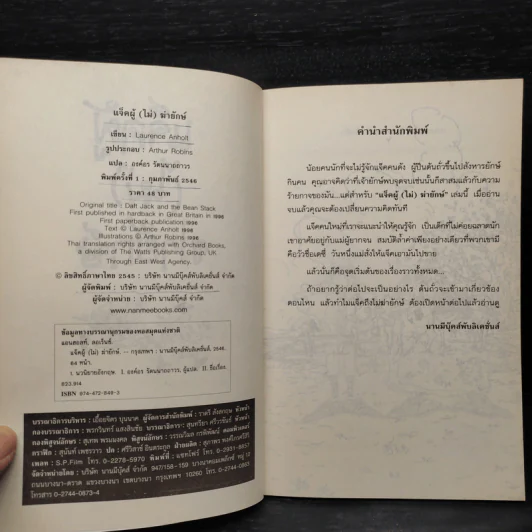 แจ็คผู้ (ไม่) ฆ่ายักษ์
เขียน : Laurence Anholt
รูปประกอบ : Arthur Robins
แปล : องค์อร รัตนนาถาวร
พิมพ์ครั้งที่ 1 : กุมภาพันธ์ 2546
ราคา 48 บาท
Original title : Daft Jack and the Bean Stack
First published in hardback in Great Britain in 1996
First paperback publication 1998
Text © Laurence Anholt 1996
Illustrations © Arthur Robins 1996
Thai translation rights arranged with Orchard Books,
a division of The Watts Publishing Group, UK
Through East West Agency.
© ลิขสิทธิ์ภาษาไทย 2545 : บริษัท นานมีบุ๊คส์พับลิเคชั่นส์ จำกัด
ผู้จัดพิมพ์ : บริษัท นานมีบุ๊คส์พับลิเคชั่นส์ จำกัด
ผู้จัดจำหน่าย : บริษัท นานมีบุ๊คส์ จำกัด
www.nanmeebooks.com
ข้อมูลทางบรรณานุกรมของหอสมุดแห่งชาติ
แอนฮอลท์, ลอเรินซ์.
แจ็คผู้ (ไม่) ฆ่ายักษ์. -- กรุงเทพฯ : นานมีบุ๊คส์พับลิเคชั่นส์, 2546.
64 หน้า.
1. นวนิยายอังกฤษ. I. องค์อร รัตนนาถาวร, ผู้แปล. II. ชื่อเรื่อง.
823.914
ISBN
บรรณาธิการบริหาร : เอื้อยจิตร บุนนาค ผู้จัดการสำนักพิมพ์ :
กองบรรณาธิการ :
กองพิสูจน์อักษร :
เพลท : S.P.Film โทร. 0-2278-5970 พิมพ์ที่ :
จัดจำหน่ายโดย : บริษัท นานมีบุ๊คส์ จำกัด
โทรสาร 0-2744-0873-4
คำนำสำนักพิมพ์
น้อยคนนักที่จะไม่รู้จักแจ็คคนดัง ผู้ปีนต้นถั่วขึ้นไปสังหารยักษ์
กินคน คุณอาจคิดว่าที่เจ้ายักษ์พบจุดจบเช่นนั้นก็สาสมแล้วกับความ
ร้ายกาจของมัน...แต่สำหรับ "แจ็คผู้ (ไม่) ฆ่ายักษ์" เล่มนี้ เมื่ออ่าน
จบแล้วคุณจะต้องเปลี่ยนความคิดทันที
แจ็คคนใหม่ที่เราจะแนะนำให้คุณรู้จัก เป็นเด็กที่ไม่ค่อยฉลาดนัก
เขาอาศัยอยู่กับแม่ผู้ยากจน สมบัติล้ำค่าเพียงอย่างเดียวที่พวกเขามี
คือวัวชื่อเดซี่ วันหนึ่งแม่สั่งให้แจ็คเอามันไปขาย
แล้วนั่นก็คือจุดเริ่มต้นของเรื่องราวทั้งหมด...
ถ้าอยากรู้ว่าต่อไปจะเป็นอย่างไร ต้นถั่วจะเข้ามาเกี่ยวข้อง
ตอนไหน แล้วทำไมแจ็คถึงไม่ฆ่ายักษ์ ต้องเปิดหน้าต่อไปแล้วอ่านดู
นานมีบุ๊คส์พับลิเคชั่นส์